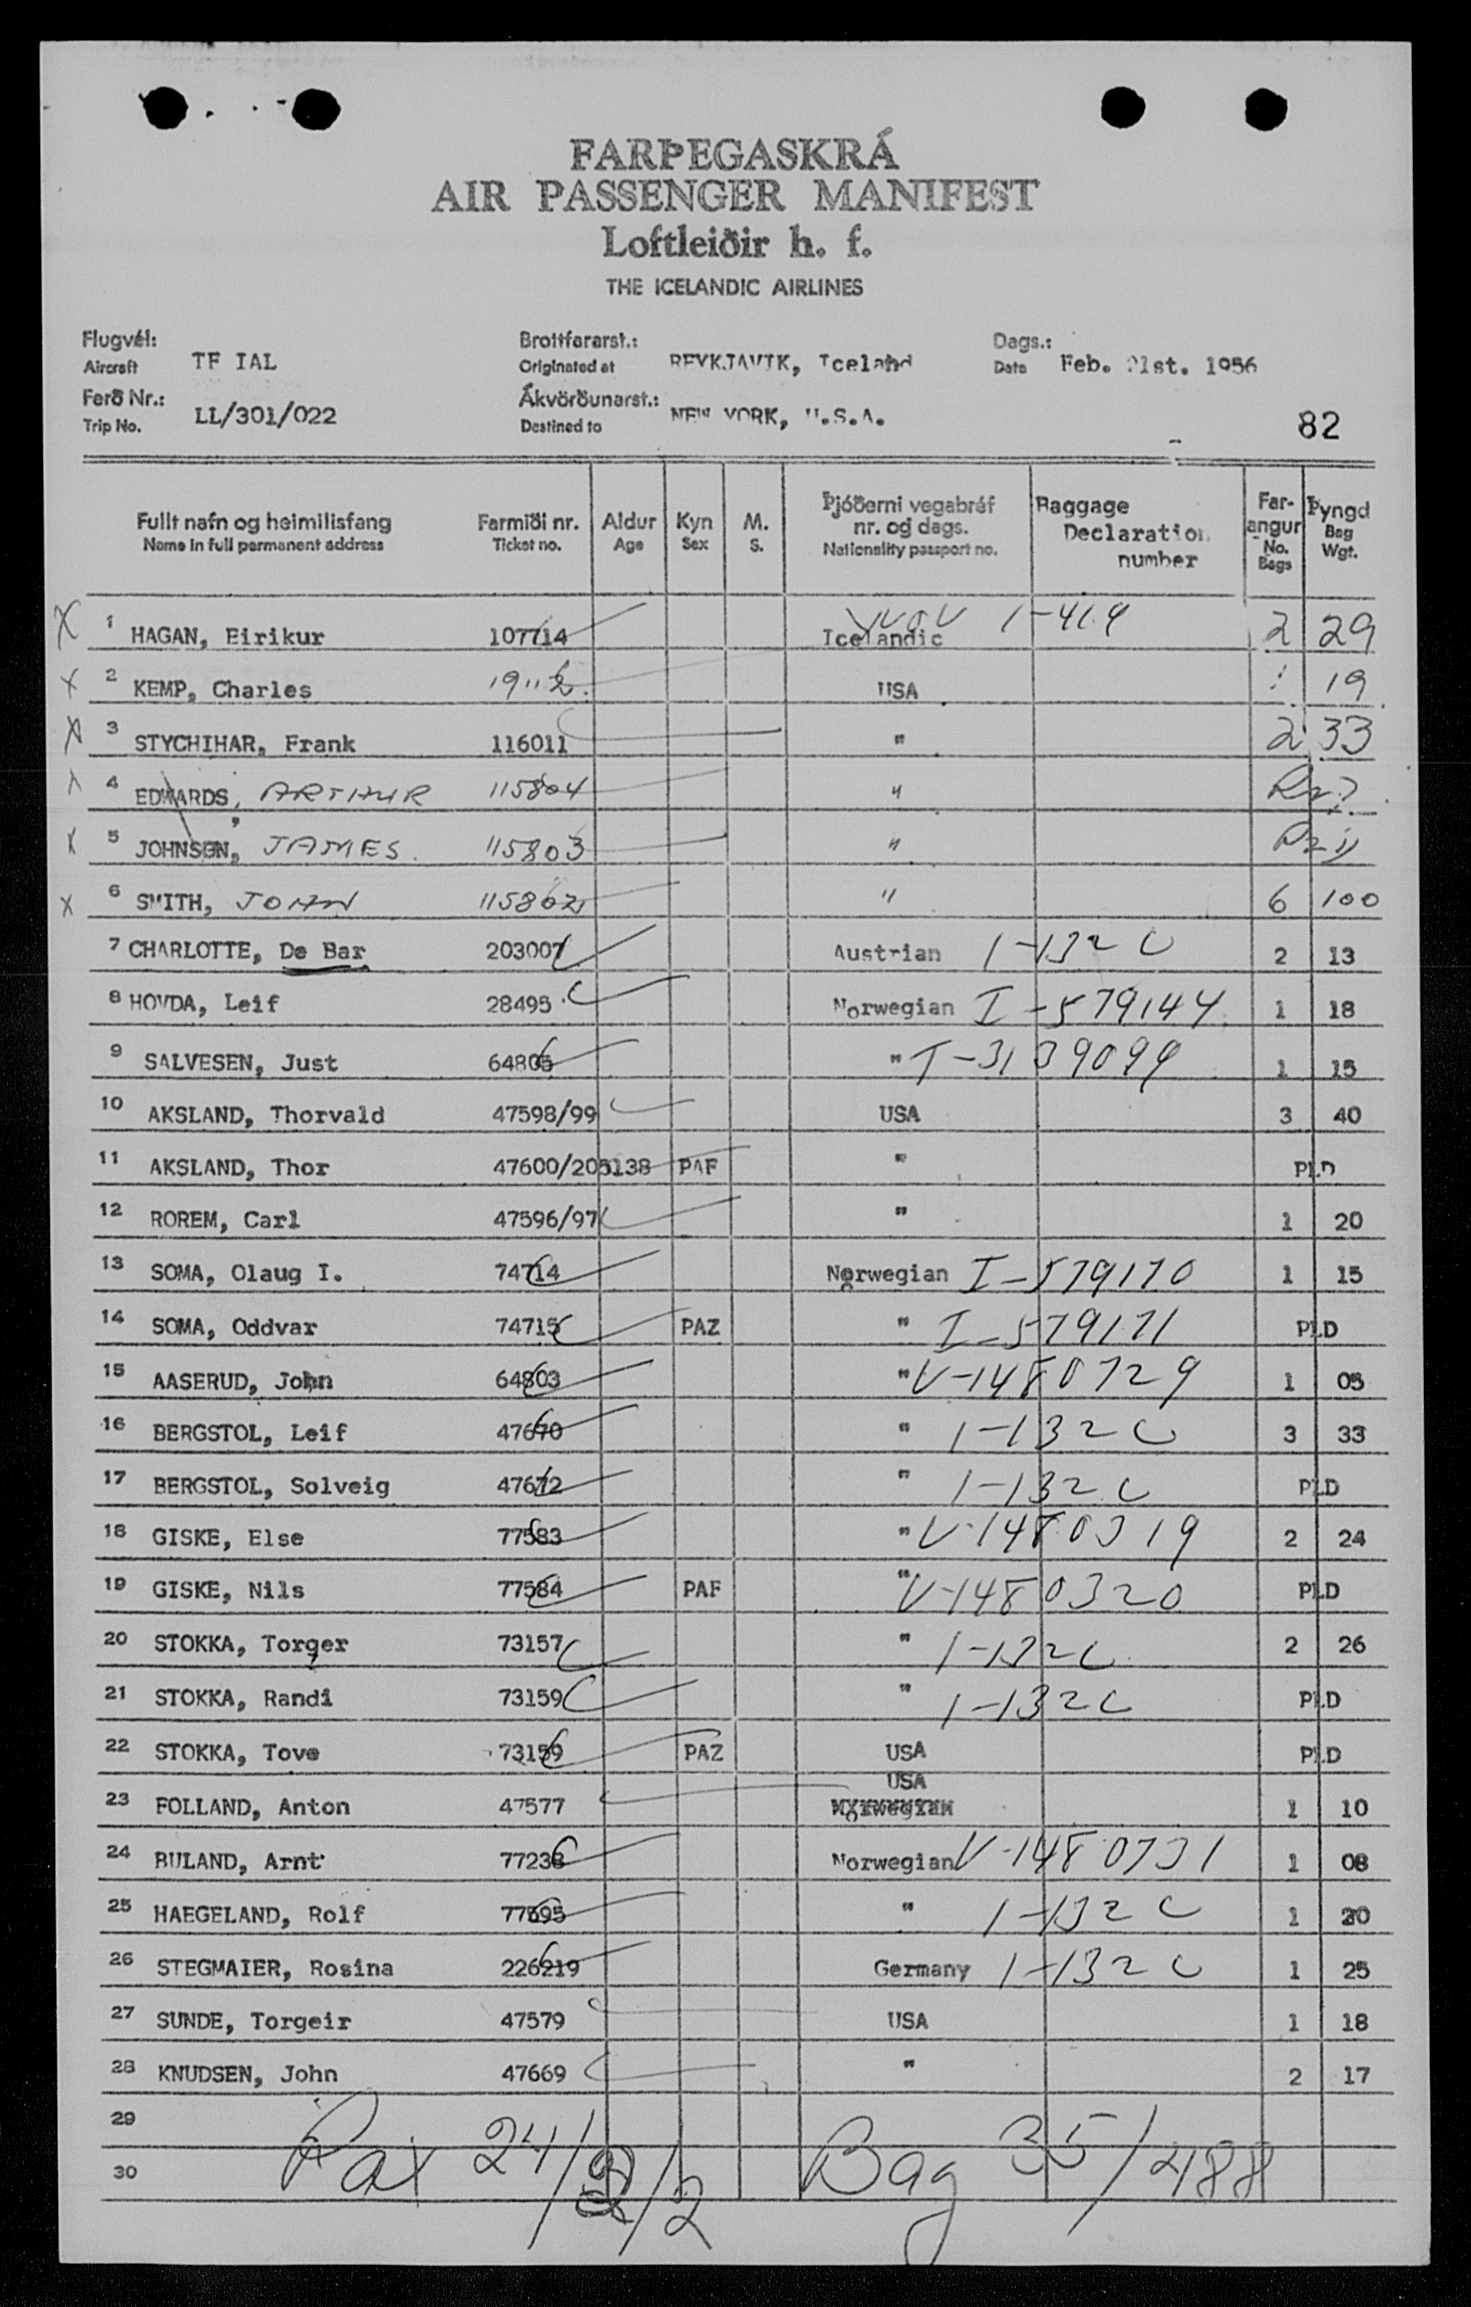 FARÞEGASKRÁ
AIR PASSENGER MANIFEST
Loftleiðir h. f.
THE ICELANDIC AIRLINES
Flugvél: Brottfararst.: Dags.:
Aircraft TF IAL Originated at REYKJAVIK, Iceland Date Feb. 21st. 1956
Ferð Nr.: Ákvörðunarst.:
Trip No. LL/301/022 Destined to NEW YORK, U.S.A. 82
Fullt nafn og heimilisfang Farmiði nr. Aldur Kyn M. Þjóðerni vegabréf nr. og dags. Baggage Declaration number Far-angur Þyngd
Name in full permanent address Ticket no. Age Sex S. Nationality passport no. No. Bags Bag Wgt.
X 1 HAGAN, Eirikur 107714 Icelandic 1-419 2 29
X 2 KEMP, Charles USA 1 19
X 3 STYCHIHAR, Frank 116011 " 2 33
X 4 EDWARDS, ARTHUR 115804 "
X 5 JOHNSEN, JAMES 115803 "
X 6 SMITH, JOHN 115862 " 6 100
7 CHARLOTTE, De Bar 203007 Austrian 1-132 C 2 13
8 HOVDA, Leif 28495 Norwegian I-579144 1 18
9 SALVESEN, Just 64805 " 1 15
10 AKSLAND, Thorvald 47598/99 USA 3 40
11 AKSLAND, Thor 47600/205138 PAF " PLD
12 ROREM, Carl 47596/97 " 1 20
13 SOMA, Olaug I. 74714 Norwegian I-579170 1 15
14 SOMA, Oddvar 74715 PAZ " I-579171 PLD
15 AASERUD, John 64803 " V-1480729 1 05
16 BERGSTOL, Leif 47670 " 1-132 C 3 33
17 BERGSTOL, Solveig 47672 " 1-132 C PLD
18 GISKE, Else 77583 " V-1480319 2 24
19 GISKE, Nils 77584 PAF " V-1480320 PLD
20 STOKKA, Torger 73157 " 1-132 C 2 26
21 STOKKA, Randi 73159 " 1-132 C PLD
22 STOKKA, Tove 73159 PAZ USA PLD
USA
23 FOLLAND, Anton 47577 Norwegian 1 10
24 RULAND, Arnt 77238 Norwegian V-1480731 1 08
25 HAEGELAND, Rolf 77595 " 1-132 C 1 20
26 STEGMAIER, Rosina 226219 Germany 1-132 C 1 25
27 SUNDE, Torgeir 47579 USA 1 18
28 KNUDSEN, John 47669 " 2 17
29
30 Pax 24/2/2 Bag 35/488